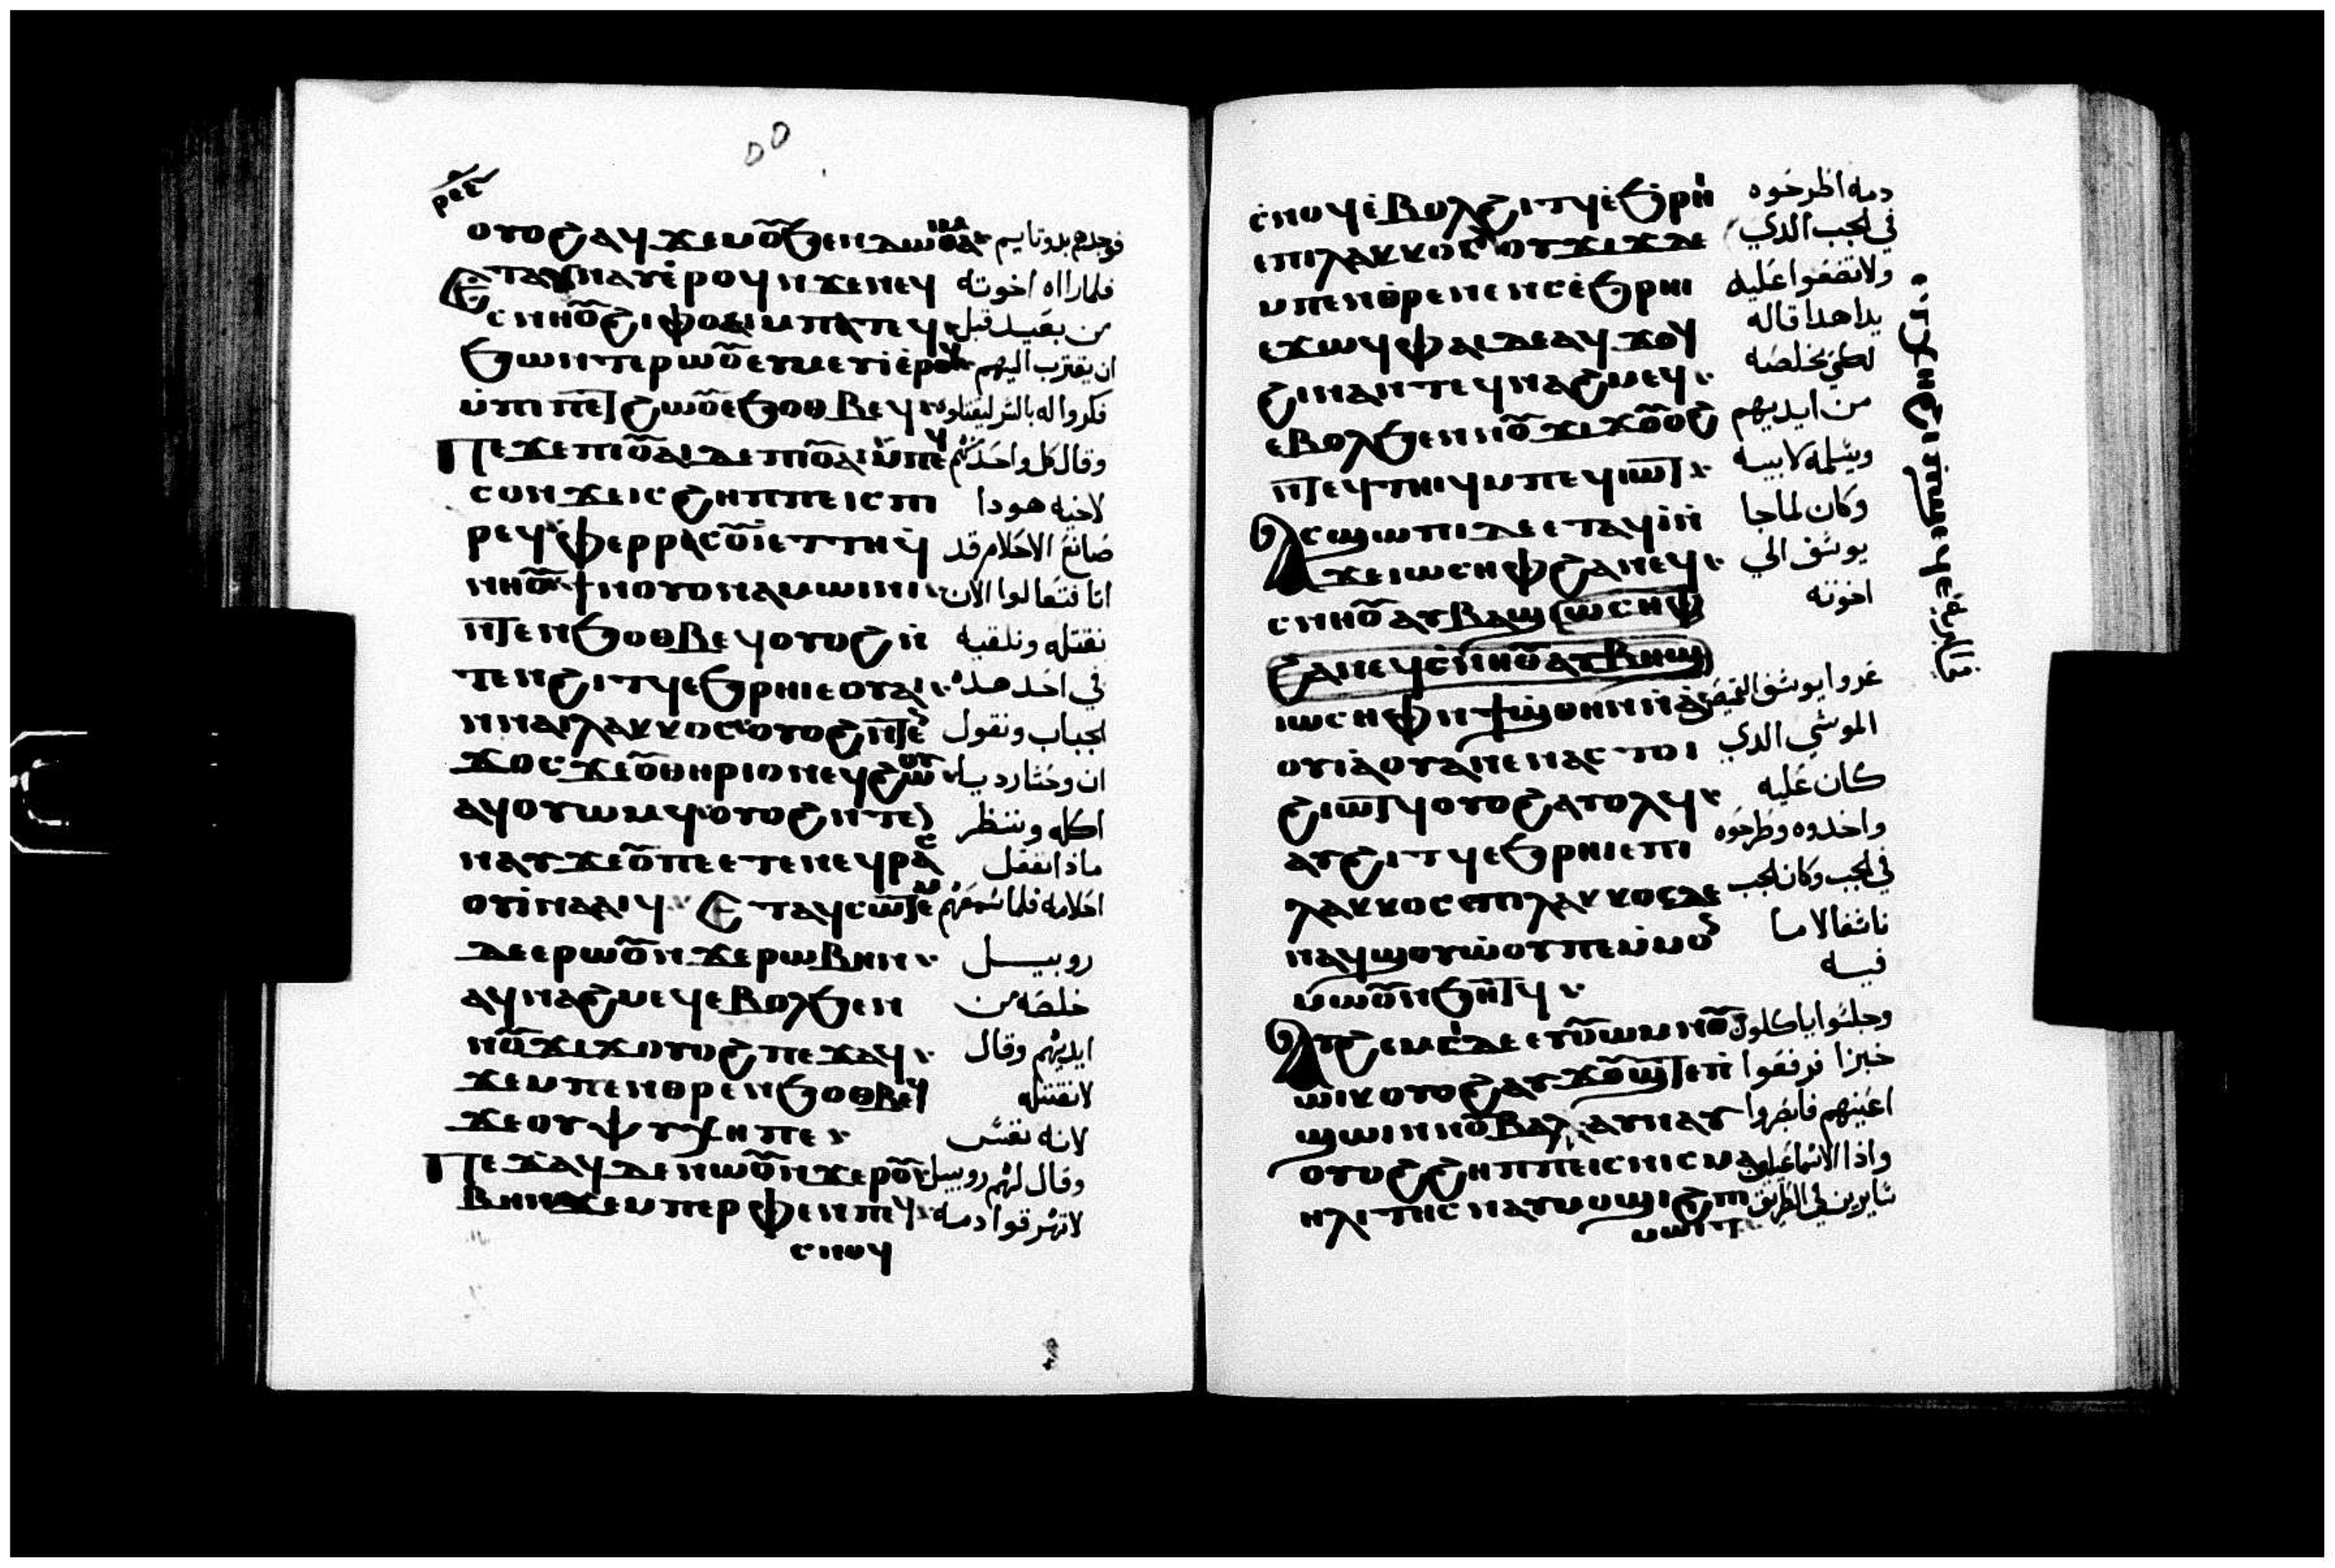 ⲣⲉⲉ
ⲟⲩⲟϩ ⲁϥϫⲉⲙⲟⲩ ϧⲉⲛ ⲇⲱⲑⲁⲓⲙ فوجدهم بدوتايم
ⲉⲧⲁⲩⲛⲁⲩ ⲉⲣⲟϥ ⲛϫⲉ ⲛⲉϥ فلما رااه اخوته
ⲥⲛⲏⲟⲩ ϩⲓ ⲫⲟⲩⲉⲓ ⲙⲡⲁⲧⲉϥ من بعيد قبل
ϧⲱⲛⲧ ⲉⲣⲱⲟⲩ ان يقترب اليهم
ⲉϧⲟⲑⲃⲉϥ فكروا له بالشر ليقتلوه
ⲡⲉϫⲉ ⲡⲓⲟⲩⲁⲓ ⲇⲉ ⲡⲓⲟⲩⲁⲓ ⲙⲡⲉϥ وقال كل واحد منهم
ⲥⲟⲛ ϫⲉ ⲓⲥ ϩⲏⲡⲡⲉ ⲓⲥ ⲡⲓ لاخيه هودا
ⲣⲉϥⲫⲉⲣⲣⲁⲥⲟⲩⲓ ⲉⲧⲧⲏ ϥ صانع الاحلام قد
ⲛⲏⲟⲩ ϯⲛⲟⲩ ⲟⲩⲛ ⲁⲙⲱⲓⲛⲓ اتا فتعالوا الان
ⲛⲧⲉⲛϧⲟⲑⲃⲉϥ ⲟⲩⲟϩ ⲛ نقتله ونلقيه
ⲧⲉⲛϩⲓⲧϥ ⲉϧⲣⲏⲓ ⲉⲟⲩⲁⲓ في احد هده
ⲛⲛⲁⲓⲗⲁⲕⲕⲟⲥ ⲟⲩⲟϩ ⲛⲧⲉⲛ الجباب ونقول
ϫⲟⲥ ϫⲉ ⲟⲩⲑⲏⲣⲓⲟⲛ ⲉϥϩⲱⲟⲩ ان وحشا رديا
ⲁϥⲟⲩⲱⲙϥ ⲟⲩⲟϩ ⲛⲧⲉⲛ اكله وننظر
ⲛⲁⲩ ϫⲉ ⲟⲩ ⲡⲉ ⲉⲧⲉ ⲛⲉϥⲣⲁⲥ ماذا تفعل
ⲟⲩⲓ ⲛⲁⲁⲓϥ ⲉⲧⲁϥⲥⲱⲧⲉⲙ احلامه فلما سمعهم
ⲇⲉ ⲉⲣⲱⲟⲩ ⲛϫⲉ ⲣⲱⲃⲏⲛ روبيل
ⲁϥⲛⲁϩⲙⲉϥ ⲉⲃⲟⲗ ϧⲉⲛ خلصه من
ⲛⲟⲩϫⲓϫ ⲟⲩⲟϩ ⲡⲉϫⲁϥ ايديهم وقال
ϫⲉ ⲙⲡⲉⲛⲑⲣⲉⲛϧⲟⲑⲃⲉϥ لانقتله
ϫⲉ ⲟⲩⲯⲩⲭⲏ ⲡⲉ لانه نفس
ⲡⲉϫⲁϥ ⲇⲉ ⲛⲱⲟⲩ ⲛϫⲉ ⲣⲟⲩ وقال لهم روبيل
ⲃⲏⲛ ϫⲉ ⲙⲡⲉⲣⲫⲉⲛ لاتهرقوا دمه
ⲥⲛⲟϥ
ⲥⲛⲟϥ ⲉⲃⲟⲗ ϩⲓⲧϥ ⲉϧⲣⲏⲓ دمه اطرحوه
ⲉⲡⲓⲗⲁⲕⲕⲟⲥ ⲟⲩϫⲓϫ ⲇⲉ في الجب الدي
ⲙⲡⲉⲛⲑⲣⲉⲛⲉⲛⲥ ⲉϧⲣⲏⲓ ولاتضعوا عليه
ⲉϫⲱϥ ⲫⲁⲓ ⲇⲉ ⲁϥϫⲟϥ يدا هدا قاله
ϩⲓⲛⲁ ⲛⲧⲉϥⲛⲁϩⲙⲉϥ لكي يخلصه
ⲉⲃⲟⲗ ϧⲉⲛ ⲛⲟⲩϫⲓϫ ⲟⲩⲟϩ من ايديهم
ⲛⲧⲉϥⲧⲏⲓϥ ⲙⲡⲉϥⲓⲱⲧ ويسلمه لابيه
ⲁⲥϣⲱⲡⲓ ⲇⲉ ⲉⲧⲁϥⲓ ⲛ وكان لما جا
ϫⲉ ⲓⲱⲥⲏⲫ ϩⲁ ⲛⲉϥ يوسف الي
ⲥⲛⲏⲟⲩ ⲁⲩⲃⲁϣ ⲓⲱⲥⲏⲫ اخوته
ϩⲁ ⲛⲉϥⲥⲛⲏⲟⲩ ⲁⲩⲃⲏϣ
ⲓⲱⲥⲏⲫ ⲛϯϣⲑⲏⲛ عروا يوسف القميص
ⲟⲩⲓⲁⲟⲩⲁⲛ ⲉⲛⲁⲥⲧⲟⲓ الموشي الدي
ϩⲓⲱⲧϥ ⲟⲩⲟϩ ⲁⲩⲟⲗϥ كان عليه
ⲁⲩϩⲓⲧϥ ⲉϧⲣⲏⲓ ⲉⲡⲓ واخدوه وطرحوه
ⲗⲁⲕⲕⲟⲥ ⲡⲓⲗⲁⲕⲕⲟⲥ ⲇⲉ في الجب وكان الجب
ⲛⲁϥϣⲟⲩⲱⲟⲩ ⲡⲉ ⲙⲙⲟⲛ ناشفا لاما
ⲙⲱⲟⲩ ⲛϧⲏⲧϥ فيه
ⲁⲩϩⲉⲙⲥⲓ ⲇⲉ ⲉⲟⲩⲱⲙ ⲛⲟⲩ وجلسوا ياكلون
ⲱⲓⲕ ⲟⲩⲟϩ ⲁⲩϫⲟⲩϣⲧ ⲉⲡ خبزا فرفعوا
ϣⲱⲓ ⲛⲛⲟⲩⲃⲁⲗ ⲁⲩⲛⲁⲩ اعينهم فابصروا
ⲟⲩⲟϩ ϩⲏⲡⲡⲉ ⲓⲥ ⲛⲓⲥⲙⲁ واذا الاسماعيليون
ⲏⲗⲓⲧⲏⲥ ⲛⲁⲩⲙⲟϣⲓ ϩⲓ ⲡⲓ سايرين في الطريق
ⲙⲱⲓⲧ